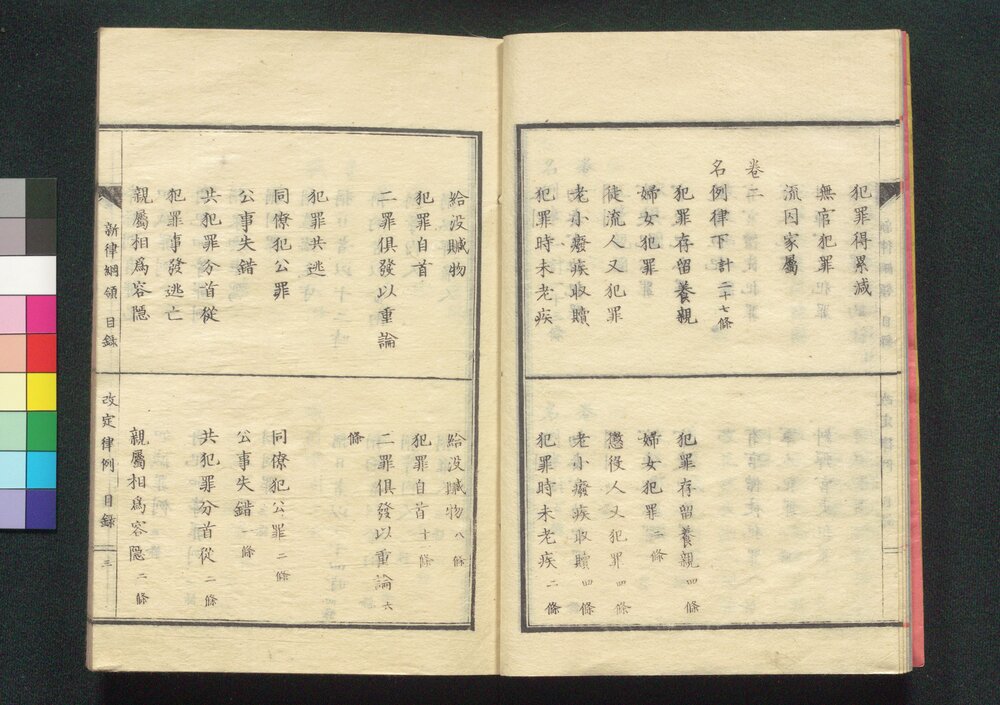 犯罪得累減
無官犯罪
流囚家屬
卷二
名例律下 計二十七條
犯罪存留養親
婦女犯罪
徒流人又犯罪
老小癈疾收贖
犯罪時未老疾
犯罪存留養親 四條
婦女犯罪 二條
懲役人又犯罪 四條
老小癈疾收贖 四條
犯罪時未老疾 二條
給没贓物
犯罪自首
二罪俱發以重論
犯罪共逃
同僚犯公罪
公事失錯
共犯罪分首從
犯罪事發逃亡
親屬相爲容隱
給没贓物 八條
犯罪自首 十條
二罪俱發以重論 六
條
同僚犯公罪 二條
公事失錯 一條
共犯罪分首從 二條
親屬相爲容隱 二條
新律綱領 目録
改定律例 目録 三